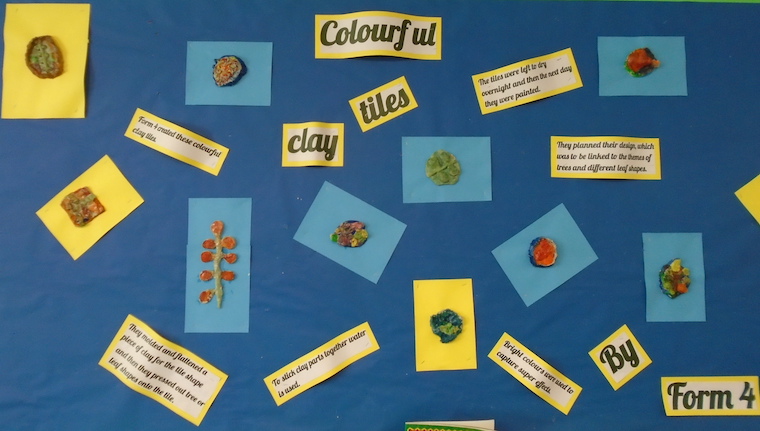 Colourful
clay
tiles
Form 4 created these colourful
clay tiles.
The tiles were left to dry
overnight and then the next day
they were painted.
They planned their design, which
was to be linked to the themes of
trees and different leaf shapes.
They molded and flattened a
piece of clay for the tile shape
and then they pressed out tree or
leaf shapes onto the tile.
To stick clay parts together water
is used.
Bright colours were used to
capture super effects.
By
Form 4